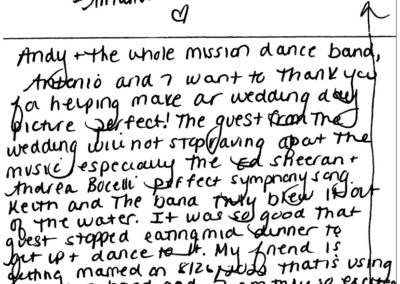 Andy + the whole mission dance band,
Antonio and I want to thank you
for helping make ar wedding day
picture perfect! The guest from the
wedding will not stop raving about the
music especially the Ed sheeran +
Andrea Bocelli perfect symphony song.
Keith and The band truly blew it out
of the water. It was so good that
guest stopped eating mid dinner to
get up + dance to it. My friend is
getting married on 8/26/2023 that is using